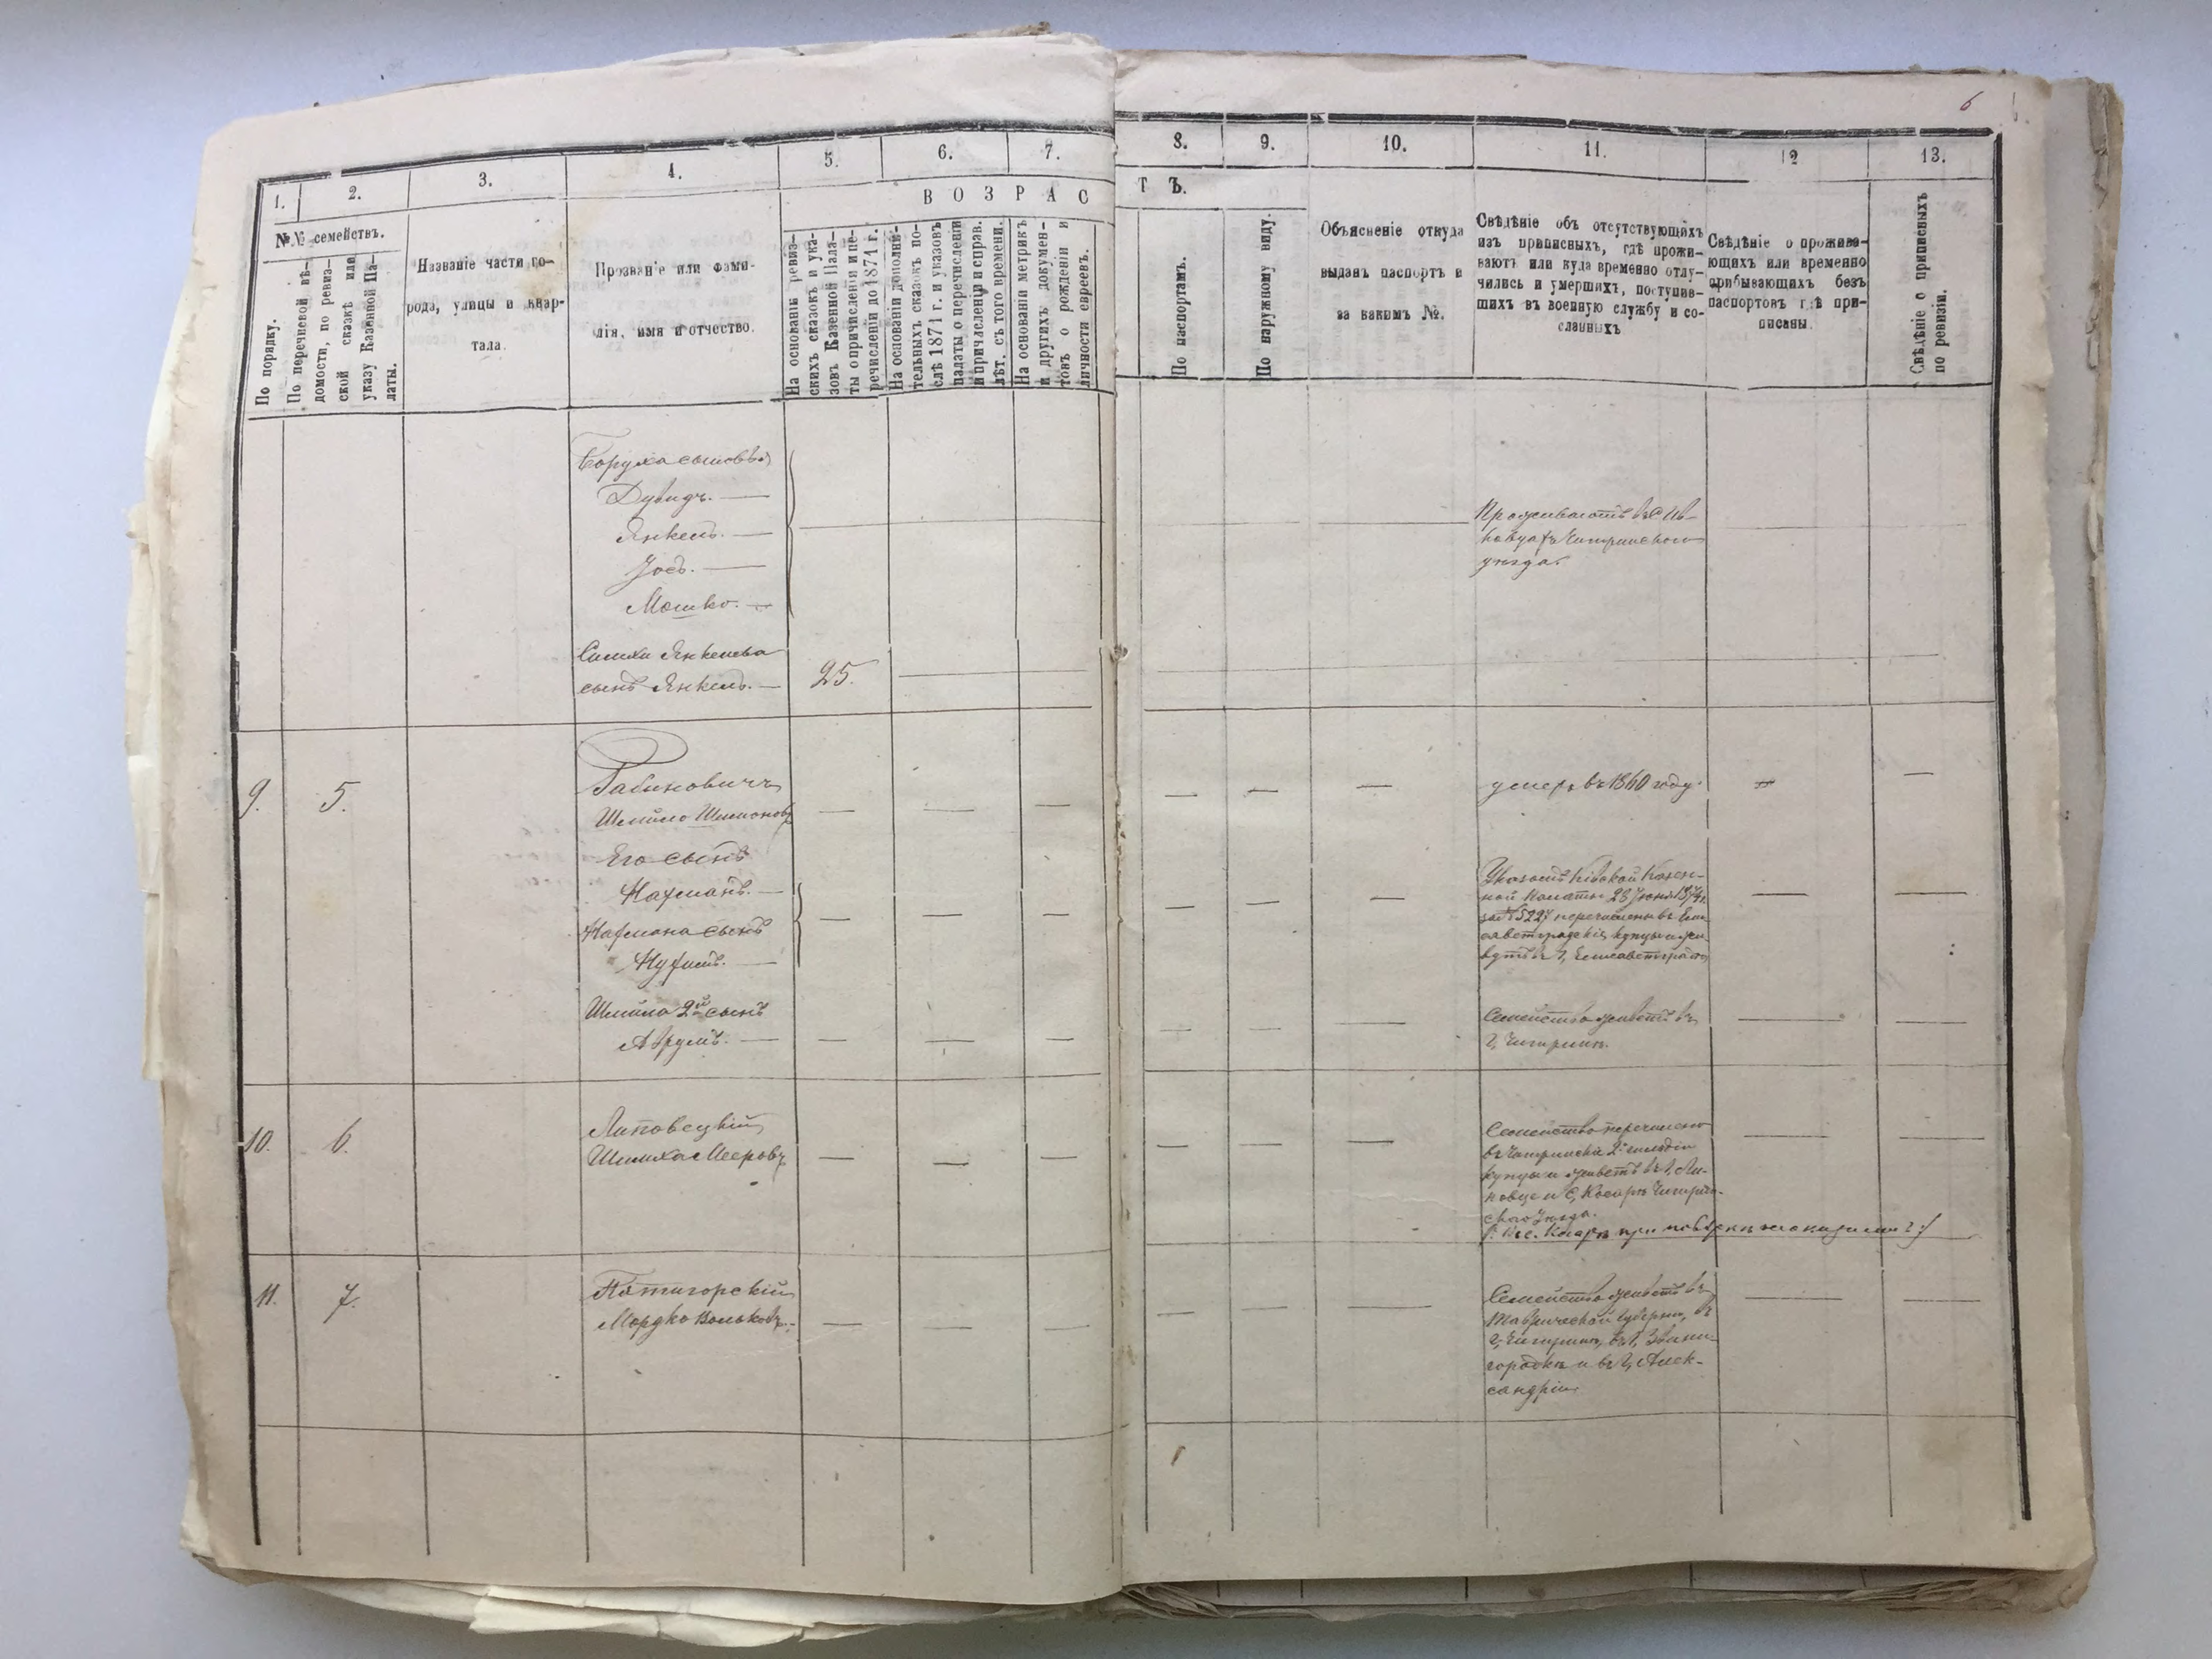 6
1.
2.
3.
4.
5.
6.
7.
8.
9.
10.
11.
12
13.
ВОЗРАС
ТЪ.
№№ семействъ.
По порядку.
По перечневой вѣ-
домости, по ревиз-
ской сказкѣ или
указу Казенной Па-
латы.
Названіе части го-
рода, улицы и квар-
тала.
Прозваніе или фами-
лія, имя и отчество.
На основаніи ревиз-
скихъ сказокъ и ука-
зовъ Казенной Пала-
ты о причисленіи и пе-
речисленіи до 1871 г.
На основаніи дополни-
тельныхъ сказокъ по-
слѣ 1871 г. и указовъ
палаты о перечисленіи
и причисленіи и справ.
лѣт. съ того времени.
На основаніи метрикъ
и другихъ докумен-
товъ о рожденіи и
личности евреевъ.
По паспортамъ.
По наружному виду.
Объясненіе откуда
выданъ паспортъ и
за какимъ №.
Свѣдѣніе объ отсутствующихъ
изъ приписныхъ, гдѣ прожи-
ваютъ или куда временно отлу-
чились и умершихъ, поступив-
шихъ въ военную службу и со-
сланныхъ
Свѣдѣніе о прожива-
ющихъ или временно
прибывающихъ безъ
паспортовъ гдѣ при-
писаны.
Свѣдѣніе о приписныхъ
по ревизіи.
Боруха сыновья
Дувидъ. —
Янкель. —
Іосъ. —
Мошко. —
Проживаютъ въ с. Ив-
ковцахъ Чигиринскаго
уѣзда.
Симхи Янкелева
сынъ Янкель. —
25.
9.
5.
Рабиновичъ
Шмійло Шимоновъ
умеръ въ 1860 году.
Его сынъ
Нахманъ. —
Нахмана сынъ
Нухимъ. —
Указомъ Кіевской Казен-
ной Палаты 28 Іюня 1874 г.
за № 5227 перечислены въ Ели-
саветградскіе купцы и жи-
вутъ въ г. Елисаветградѣ
Шмійла 2й сынъ
Аврумъ. —
Семейство живетъ въ
г. Чигиринѣ.
10.
6.
Липовецкій
Шлиха Мееровъ
Семейство перечислено
въ Чигиринскіе 2й гильдіи
купцы и живетъ въ
и С. Косарѣ Чигирин-
скаго Уѣзда.
въ с. Косарѣ при повѣркѣ не оказались
11.
7.
Пятигорскій
Мордко Вольковъ.
Семейство живетъ въ
Таврической Губерніи, въ
г. Чигиринѣ, въ г. Звени-
городкѣ и въ г. Алек-
сандріи